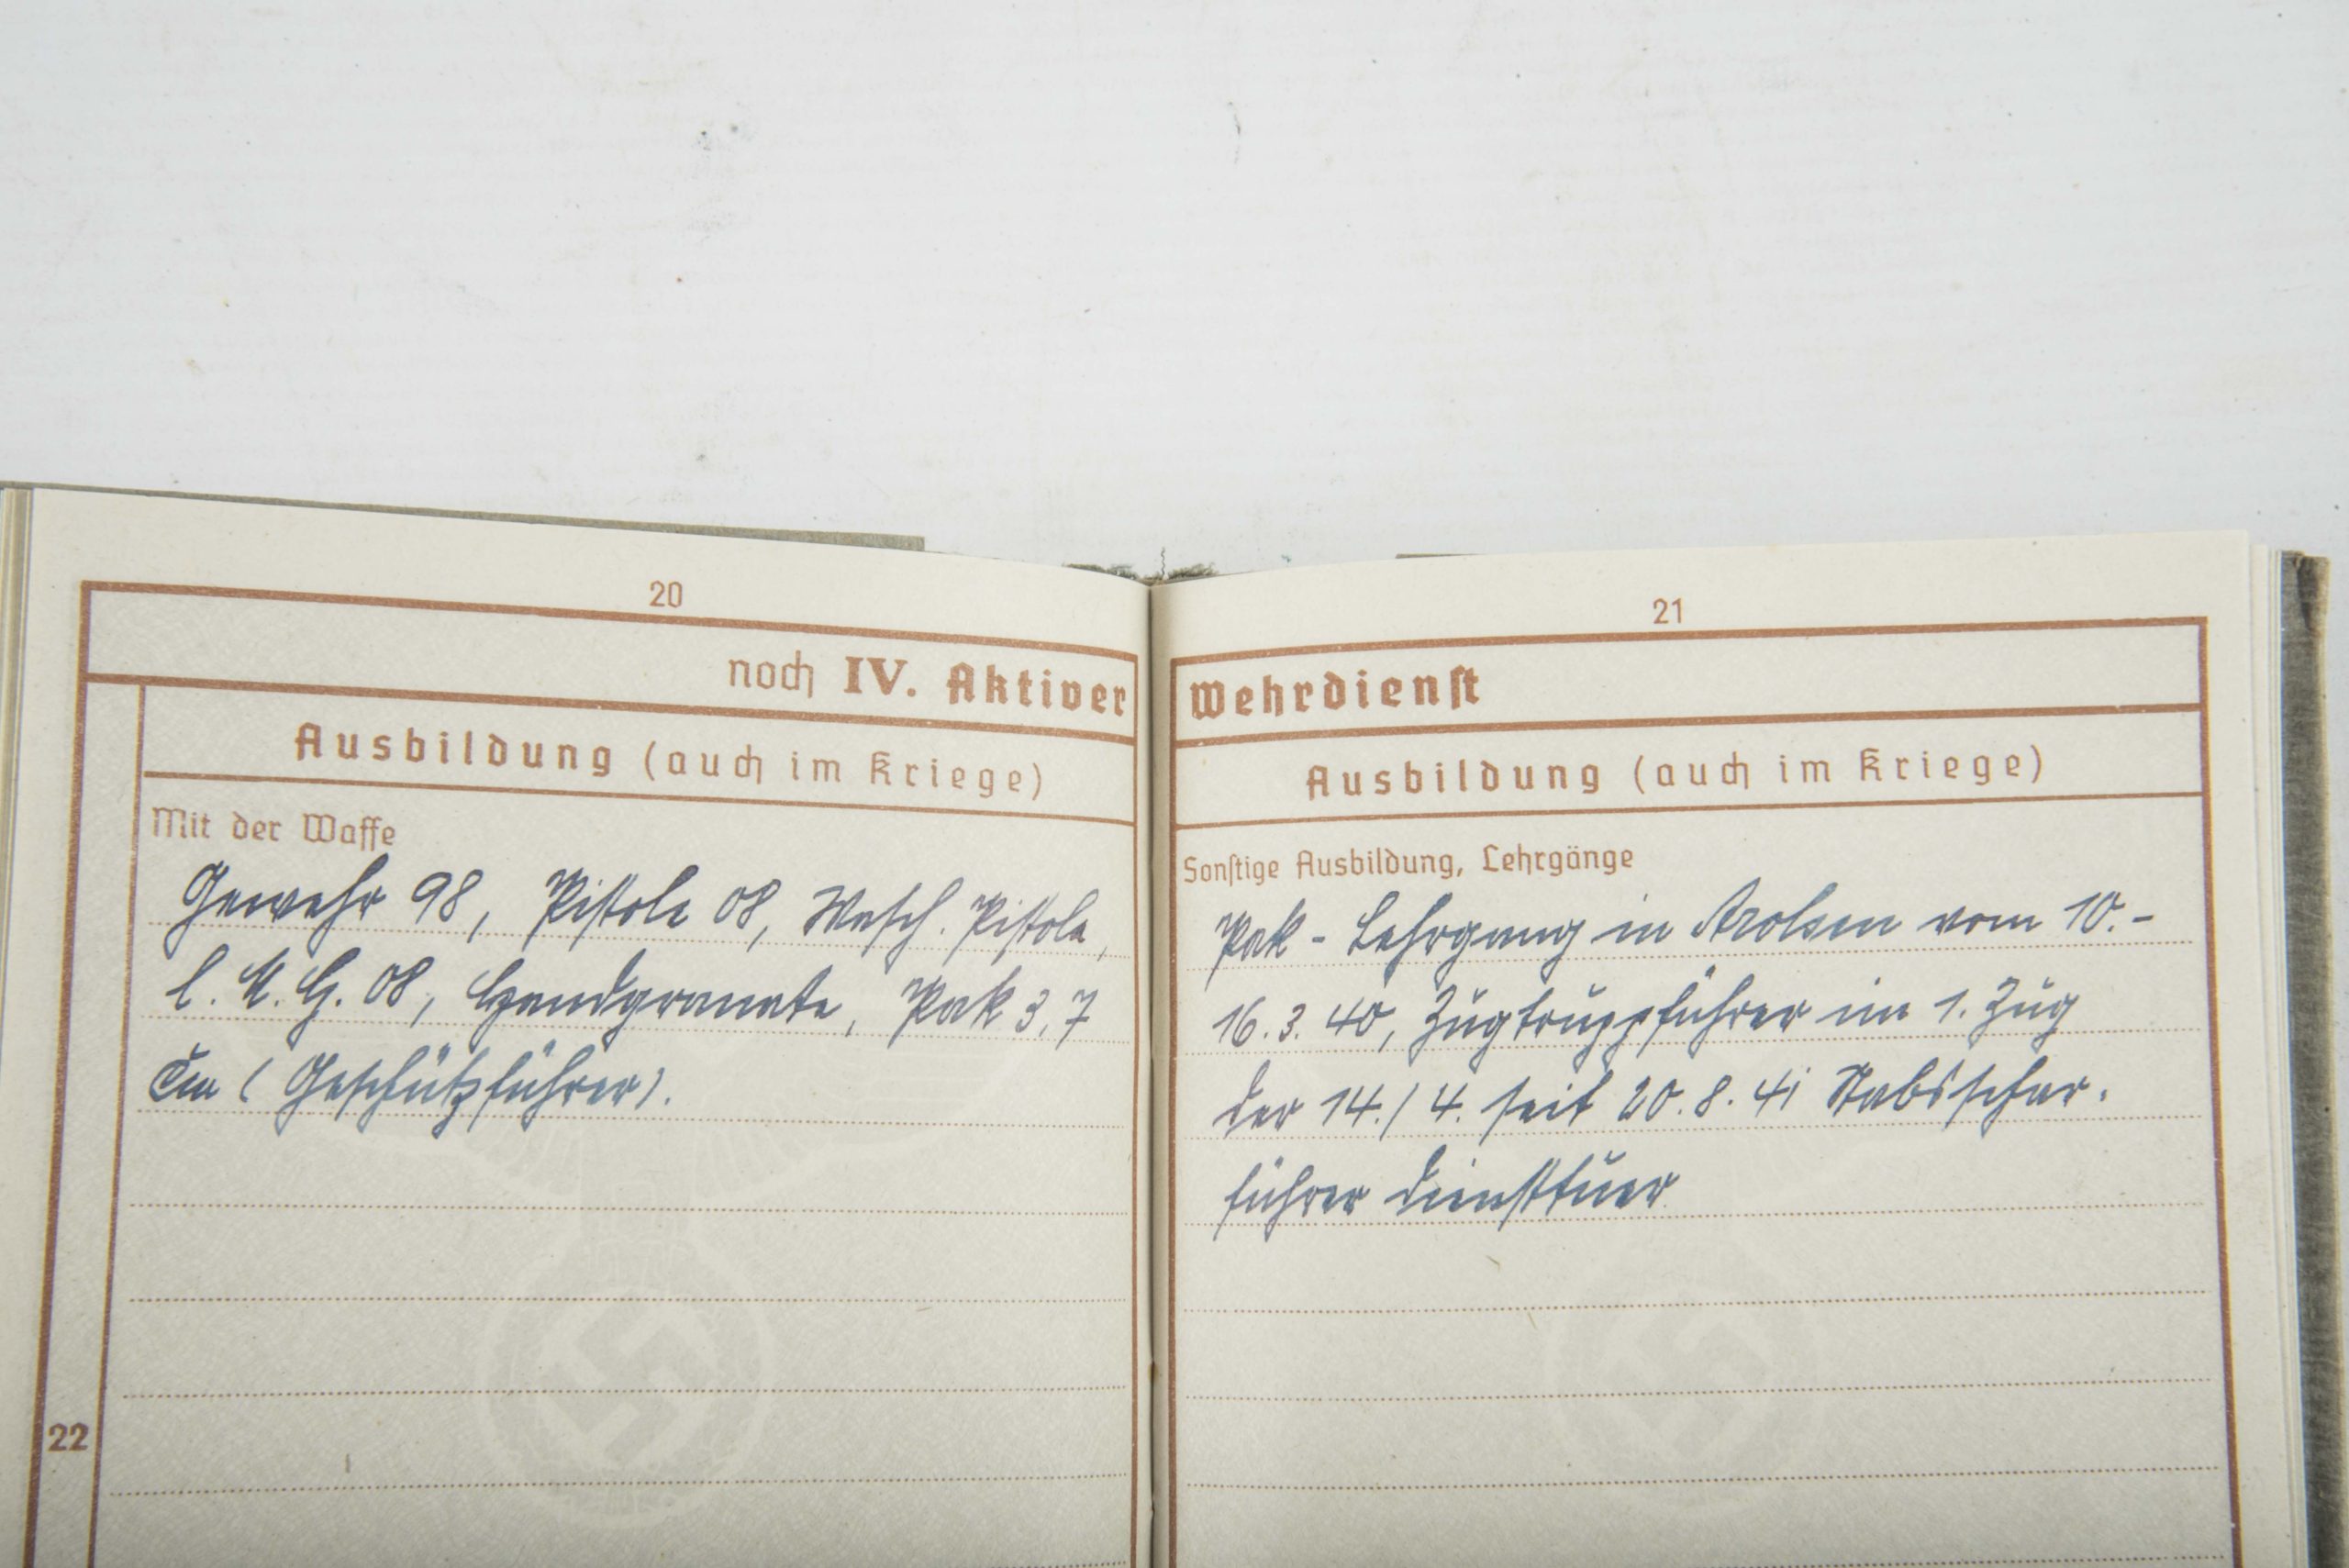 20
noch IV. Aktiver
Ausbildung (auch im Kriege)
Mit der Waffe
Gewehr 98, Pistole 08, Masch. Pistole,
l. M. G. 08, Handgranate, Pak 3,7
cm (Geschützführer).
22
21
Wehrdienst
Ausbildung (auch im Kriege)
Sonstige Ausbildung, Lehrgänge
Pak - Lehrgang in Arolsen vom 10.-
16. 3. 40, Zugtruppführer im 1. Zug
der 14./4. seit 20. 8. 41 Stabsschar.
führer diensttuer